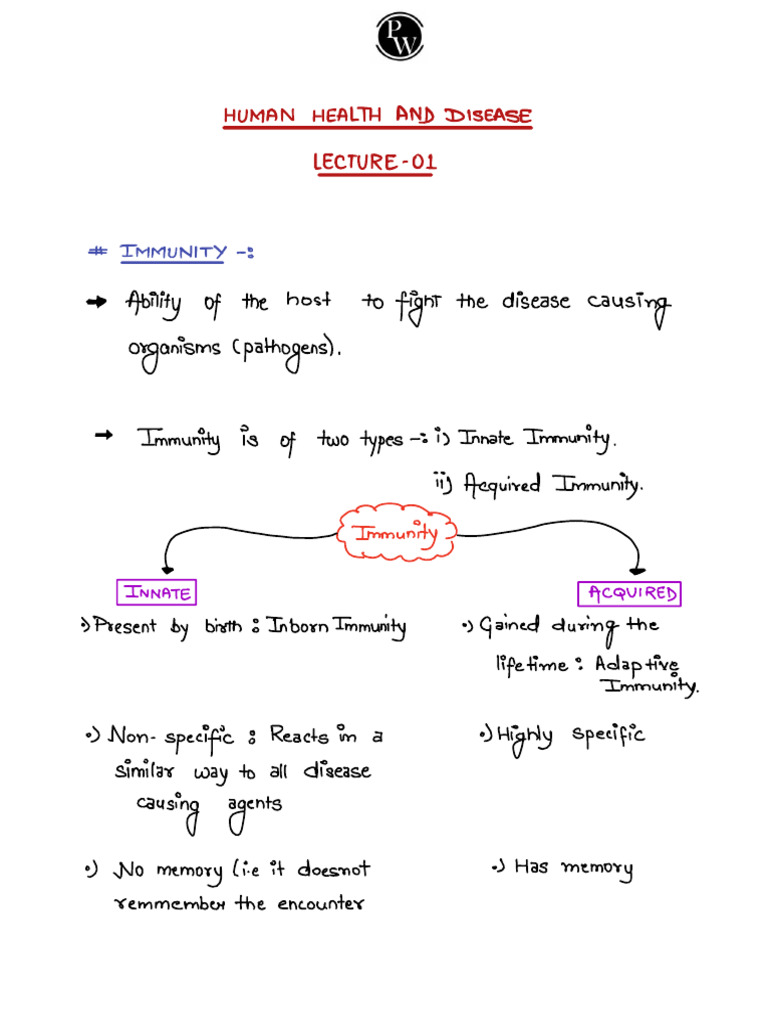 PW
HUMAN HEALTH AND DISEASE
LECTURE-01
# IMMUNITY -:
→ Ability of the host to fight the disease causing
organisms (pathogens).
→ Immunity is of two types -: i) Innate Immunity.
ii) Acquired Immunity.
Immunity
INNATE
ACQUIRED
•) Present by birth : Inborn Immunity
•) Gained during the
lifetime : Adaptive
Immunity.
•) Non-specific : Reacts in a
similar way to all disease
causing agents
•) Highly specific
•) No memory (i.e it doesnot
remmember the encounter
•) Has memory